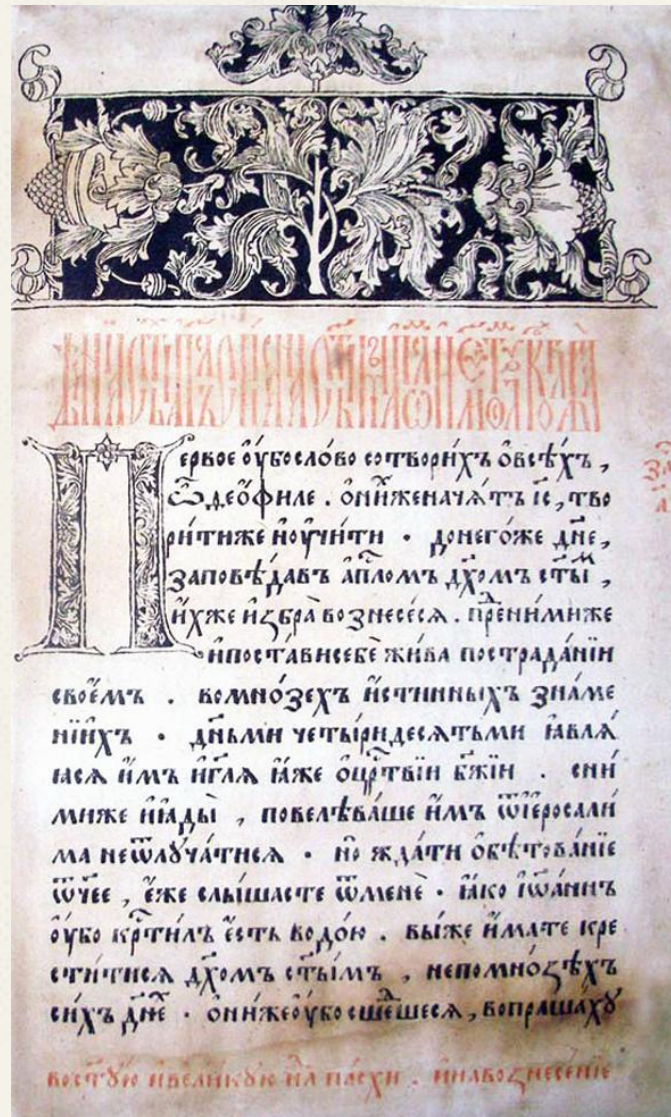 Первое оубо слово сотворихъ ѻвсѣхъ,
ѽ деѻ́филе. ѻ ни́хже начя́тъ і҆с, тво
ри́тиже и҆ оучи́ти · до него́же дн҃е,
заповѣ́давъ а҆п҃лом дх҃омъ ст҃ы́м,
и҆́хже и҆збра̀ вознесе́ся. пре ни́миже
и҆ поста́ви себѐ жи́ва по страда́нїи
свое́мъ. во мно́зехъ и҆́стинныхъ зна́ме
нїихъ · дн҃ьми четы́ридесятьми ꙗ҆вля́
ꙗся и҆̀мъ и҆ гл҃я ꙗ҆̀же ѻ цр҃твїи бж҃їи. сни́
миже и҆ ꙗ҆ды̀, повелѣва́ше и҆̀мъ ѿ і҆еросали́
ма не ѿлуча́тися · но жда́ти ѻбѣтова́нїе
ѻ҆́ч҃ее, е҆́же слы́шасте ѿ менѐ · ꙗ҆́ко і҆ѡа́ннъ
оубо кр҃ти́лъ е҆́сть водо́ю. вы́же и҆́мате кре
сти́тися дх҃омъ ст҃ы́мъ, не по мно́зѣхъ
си́хъ дн҃е · ѻни́же оубо сше́дшеся, вопраша́ху
во ст҃ую и҆ вели́кую нл҃ пасхи. и҆ на вознесе́нїе